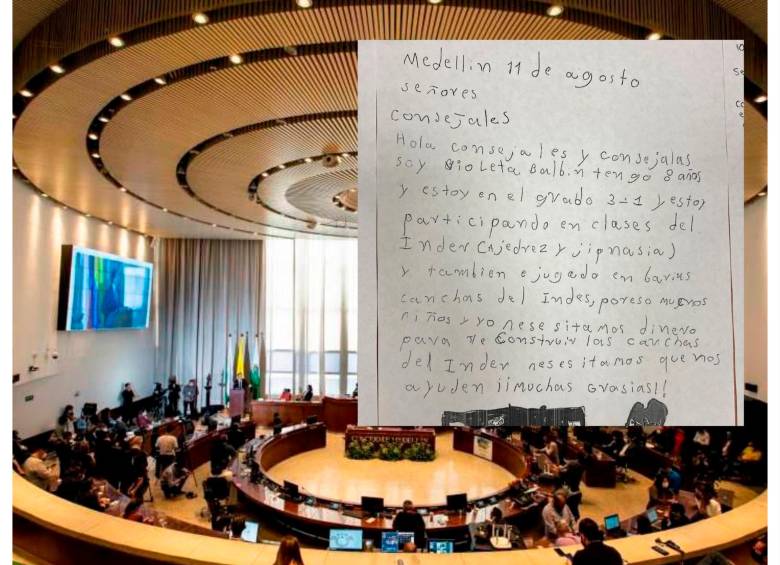 Medellin 11 de agosto
señores
consejales
Hola consejales y consejalas
soy Violeta Balbin tengo 8 años
y estoy en el grado 3-1 y estoy
participando en clases del
Inder (ajedrez y jipnasia)
y tambien e jugado en barias
canchas del Indes, por eso muchos
niños y yo nesesitamos dinero
para reconstruir las canchas
del Inder nesesitamos que nos
ayuden ¡¡Muchas grasias!!
CONCEJO DE MEDELLÍN